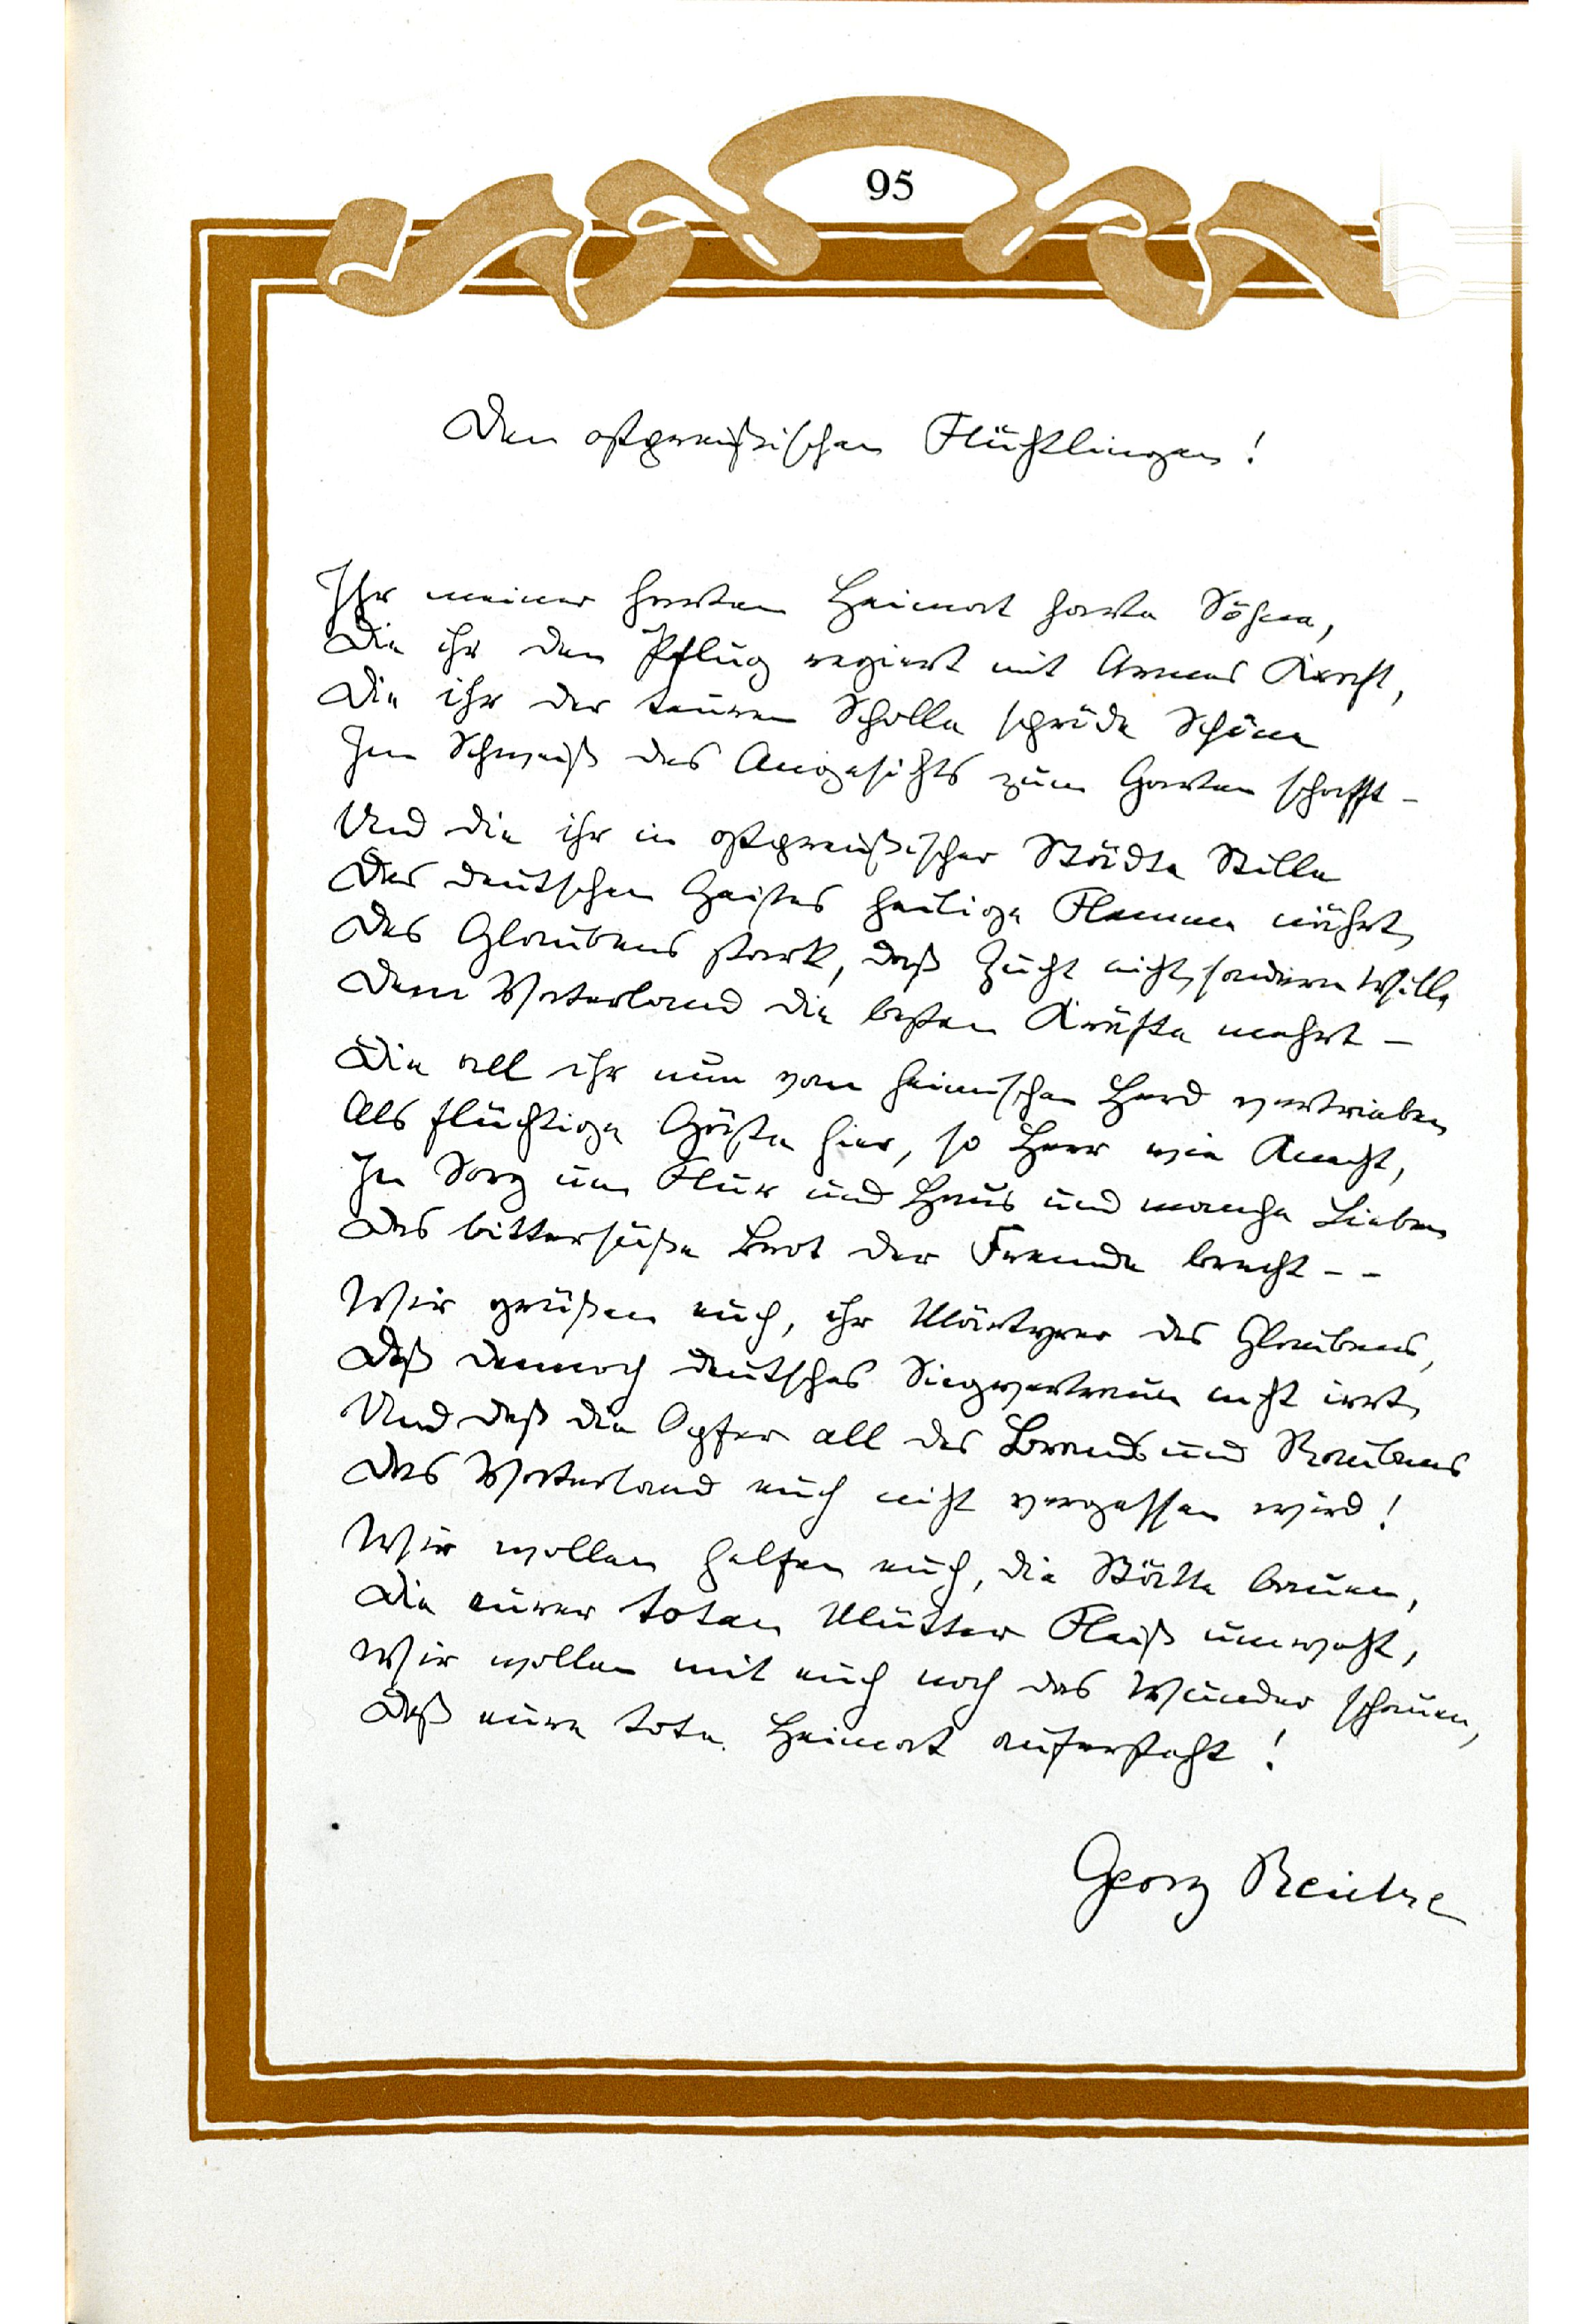 95
Den ostpreußischen Flüchtlingen!
Ihr meiner harten Heimat harte Söhne,
Die ihr den Pflug regiert mit Armes Kraft,
Die ihr der teuren Scholle spröde Schöne
Im Schweiß des Angesichts zum Garten schafft –
Und die ihr in ostpreußischer Städte Stille
Des deutschen Geistes heilige Flamme nährt,
Des Glaubens stark, daß Zucht nicht, sondern Wille
Dem Vaterland die besten Kräfte mehrt –
Die all ihr nun vom heimischen Herd vertrieben
Als flüchtige Gäste hier, so Herr wie Knecht,
In Sorg um Flur und Haus und manche Lieben
Das bittersüße Brot der Fremde brecht – –
Wir grüßen euch, ihr Märtyrer des Glaubens,
Daß dennoch deutsches Siegvertraun nicht irrt,
Und daß die Opfer all des Brands und Raubens
Das Vaterland euch nicht vergessen wird!
Wir wollen helfen euch, die Stätte bauen,
Die eurer toten Mütter Fleiß umweht,
Wir wollen mit euch noch das Wunder schauen,
Daß eure tote Heimat aufersteht!
Georg Reicke